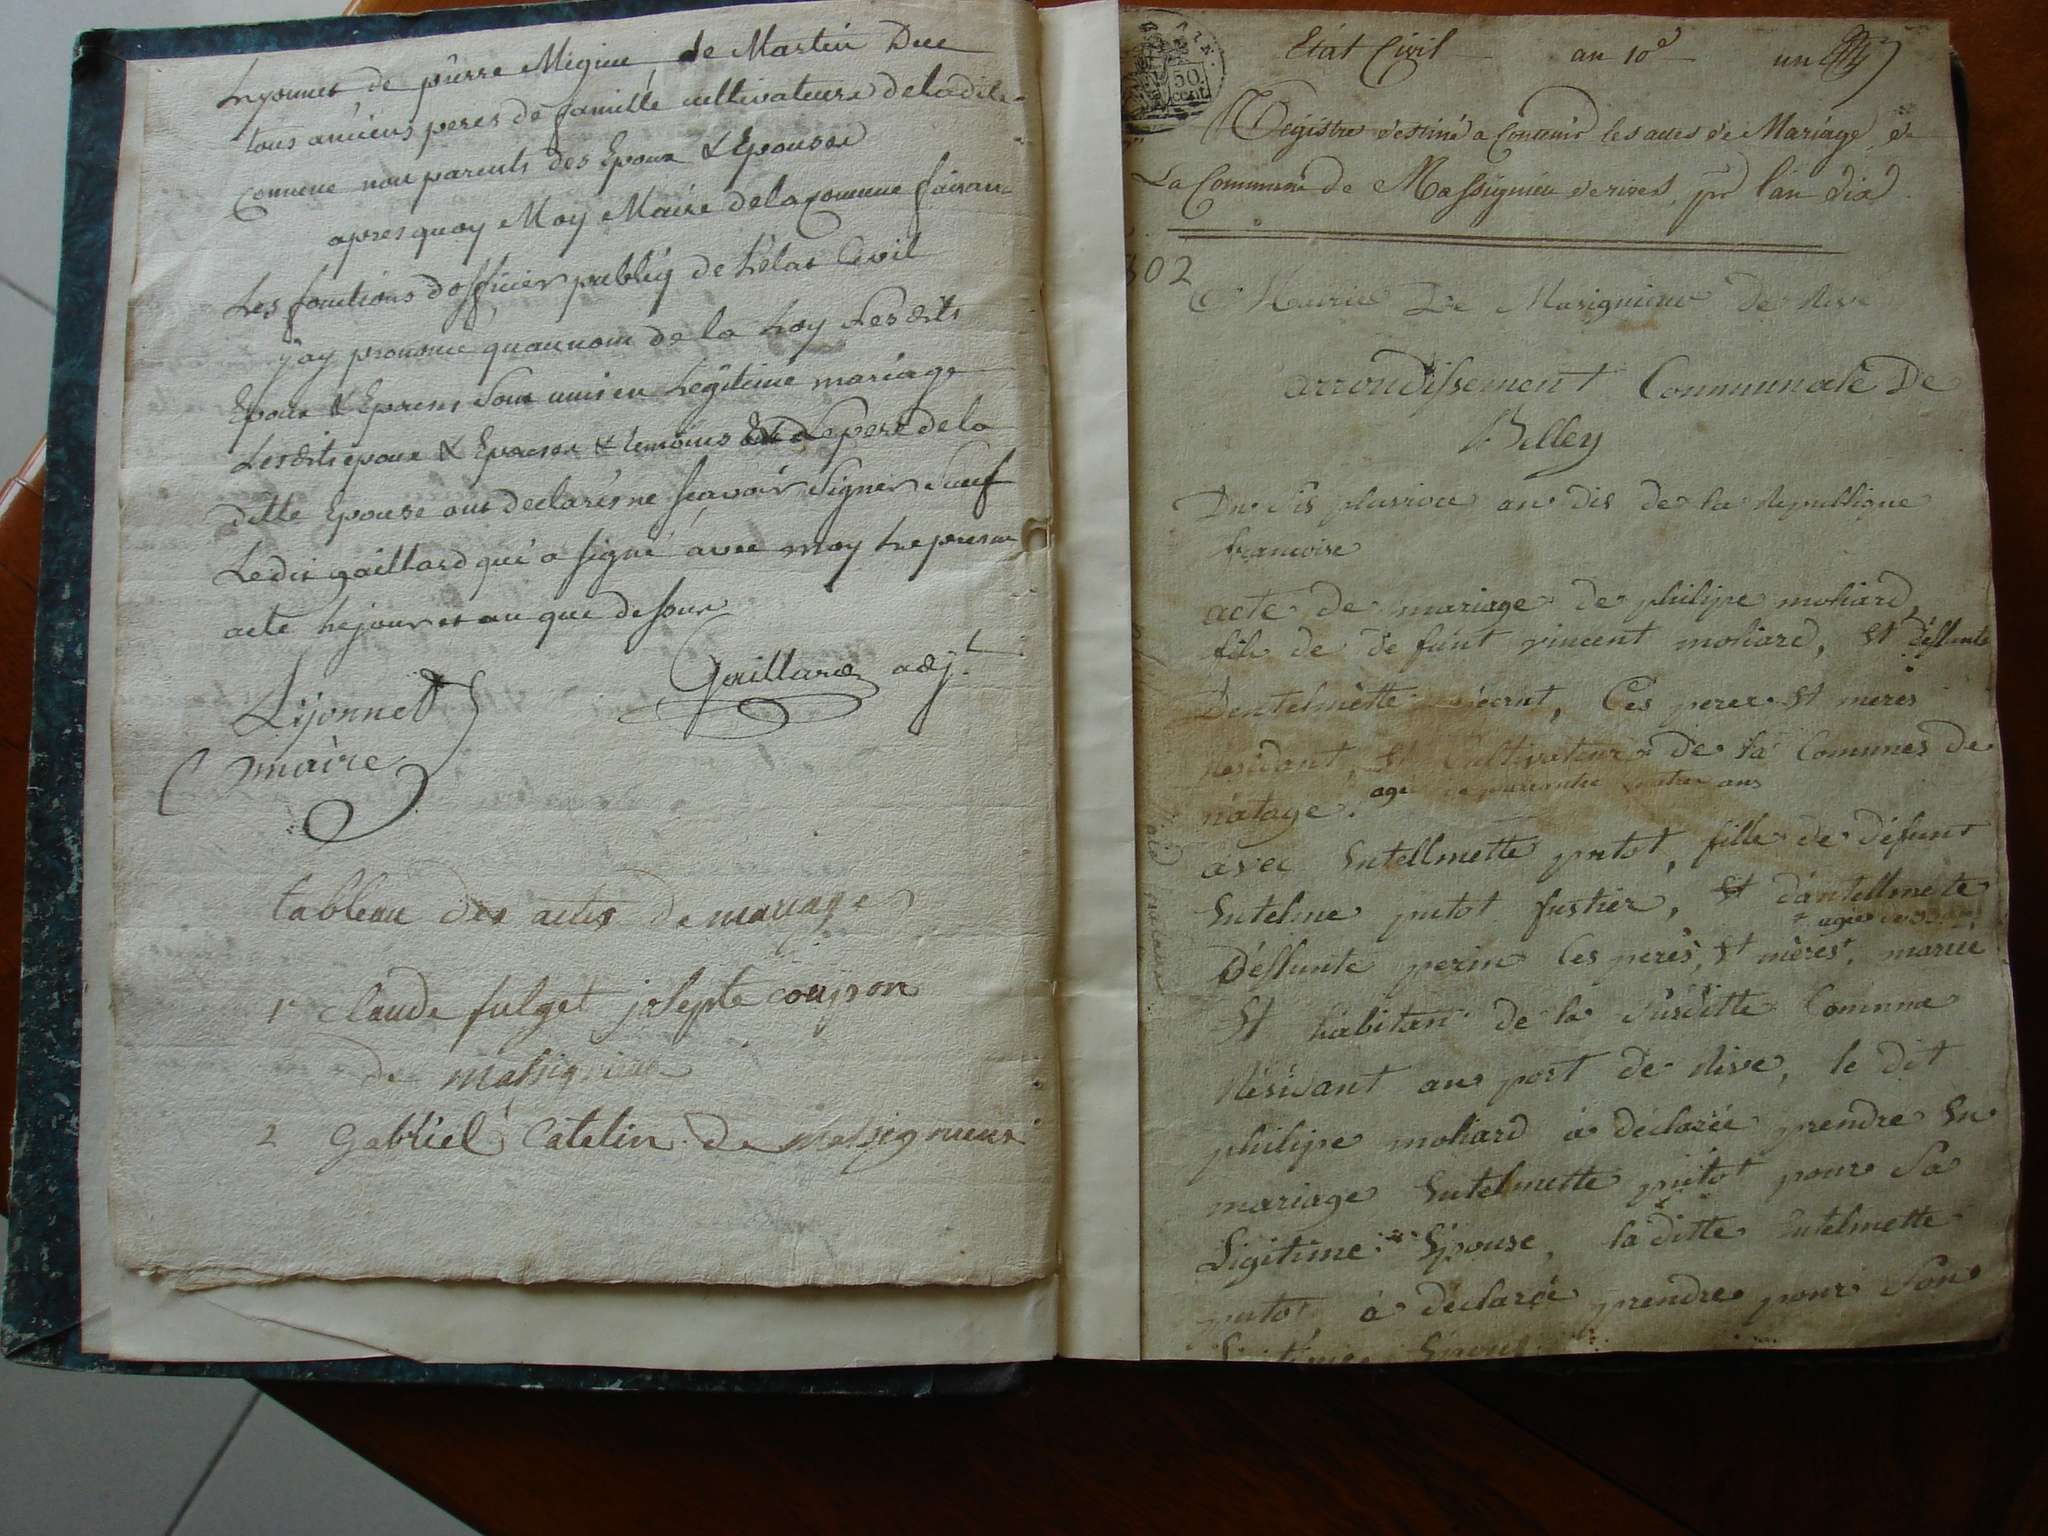 Lyonnet de pierre Migieu de Martin Duc
tous anciens peres de famille cultivateurs de la dite
Commune non parents des Epoux & Epouse
apres quoy Moy Maire de la Commune faisant
Les fonctions dofficier publiq de Létat Civil
j'ay prononcé quau nom de la Loy Lesdits
Epoux & sont unis en Legitime mariage
Lesdits epoux & Epouse & temoins Le pere de la
ditte Epouse ont declarés ne sçavoir Signer Sauf
Ledit gaillard qui a signé avec moy Le present
acte Le jour et an que dessus
Gaillard adjt
Lyonnet
maire
tableau des actes de mariage
1r Claude fulget josepte coujson
de massignieu
2 Gabriel Catelin de Massignieux
50
cent
Etat Civil an 10e un
Registre destiné a Contenir les actes de Mariage de
La Commune de Massignieu de rives, pr l'an dix
802
Mairie De Masignieux de Rive
arrondissement Communale De
Belley
Du dis pluvioce an dis de la Republique
francoise
acte de mariage de philipe moliard,
fils de defunt vincent moliard, Et deffunte
Dentelmette , Ces peres Et meres
Residant, Et Cultivateur de la Comunes de
natage. age de ans
avec Entellmette putot, fille de défunt
Entelme putot fustier, Et dantellmette
agée de
Deffunte perin Ces perés, Et mères, mariée
Et habitan de la Susditte Commune
Résidant au port de Rive, le dit
philipe moliard a déclarée prendre En
mariage Entelmette putot pour Sa
Ligitime Epouse, la ditte Entelmette
putot a déclarée prendre pour Son
Epoux